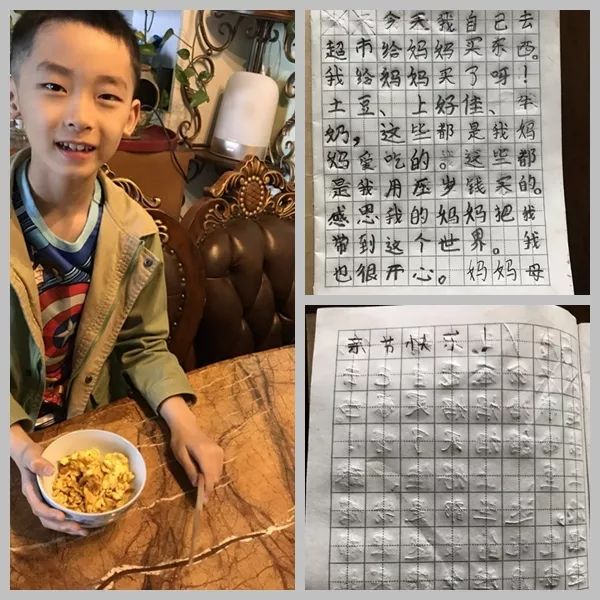 今天我自己去
超市给妈妈买东西。
我给妈妈买了呀！
土豆、上好佳、牛
奶，这些都是我妈
妈爱吃的。这些都
是我用压岁钱买的。
感思我的妈妈把我
带到这个世界。我
也很开心。妈妈母
亲节快乐！